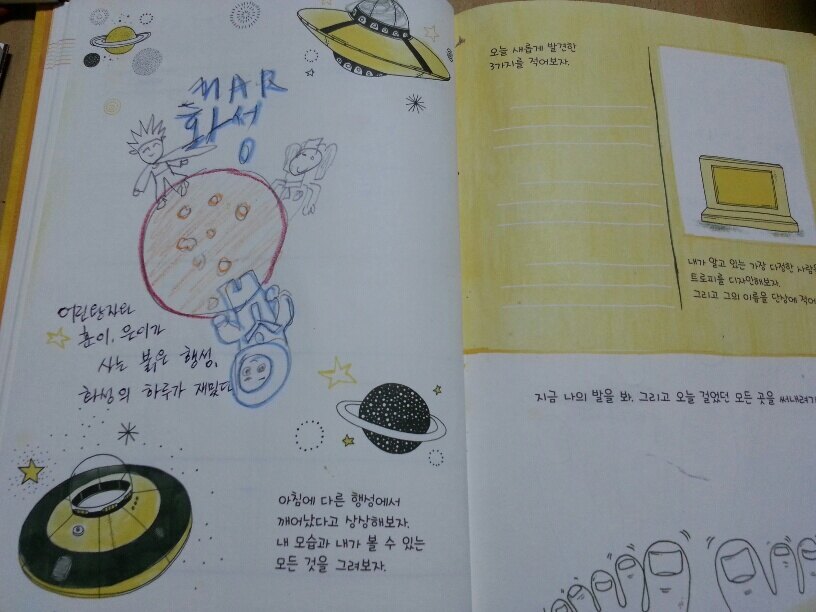 MAR
화성
어린탐지다
훈이, 윤이가
사는 붉은 행성,
화성의 하루가 재밌다
아침에 다른 행성에서
깨어났다고 상상해보자.
내 모습과 내가 볼 수 있는
모든 것을 그려보자.
오늘 새롭게 발견한
3가지를 적어보자.
내가 알고 있는 가장 다정한 사람
트로피를 디자인해보자.
그리고 그의 이름을 단상에 적어
지금 나의 발을 봐. 그리고 오늘 걸었던 모든 곳을 써내려